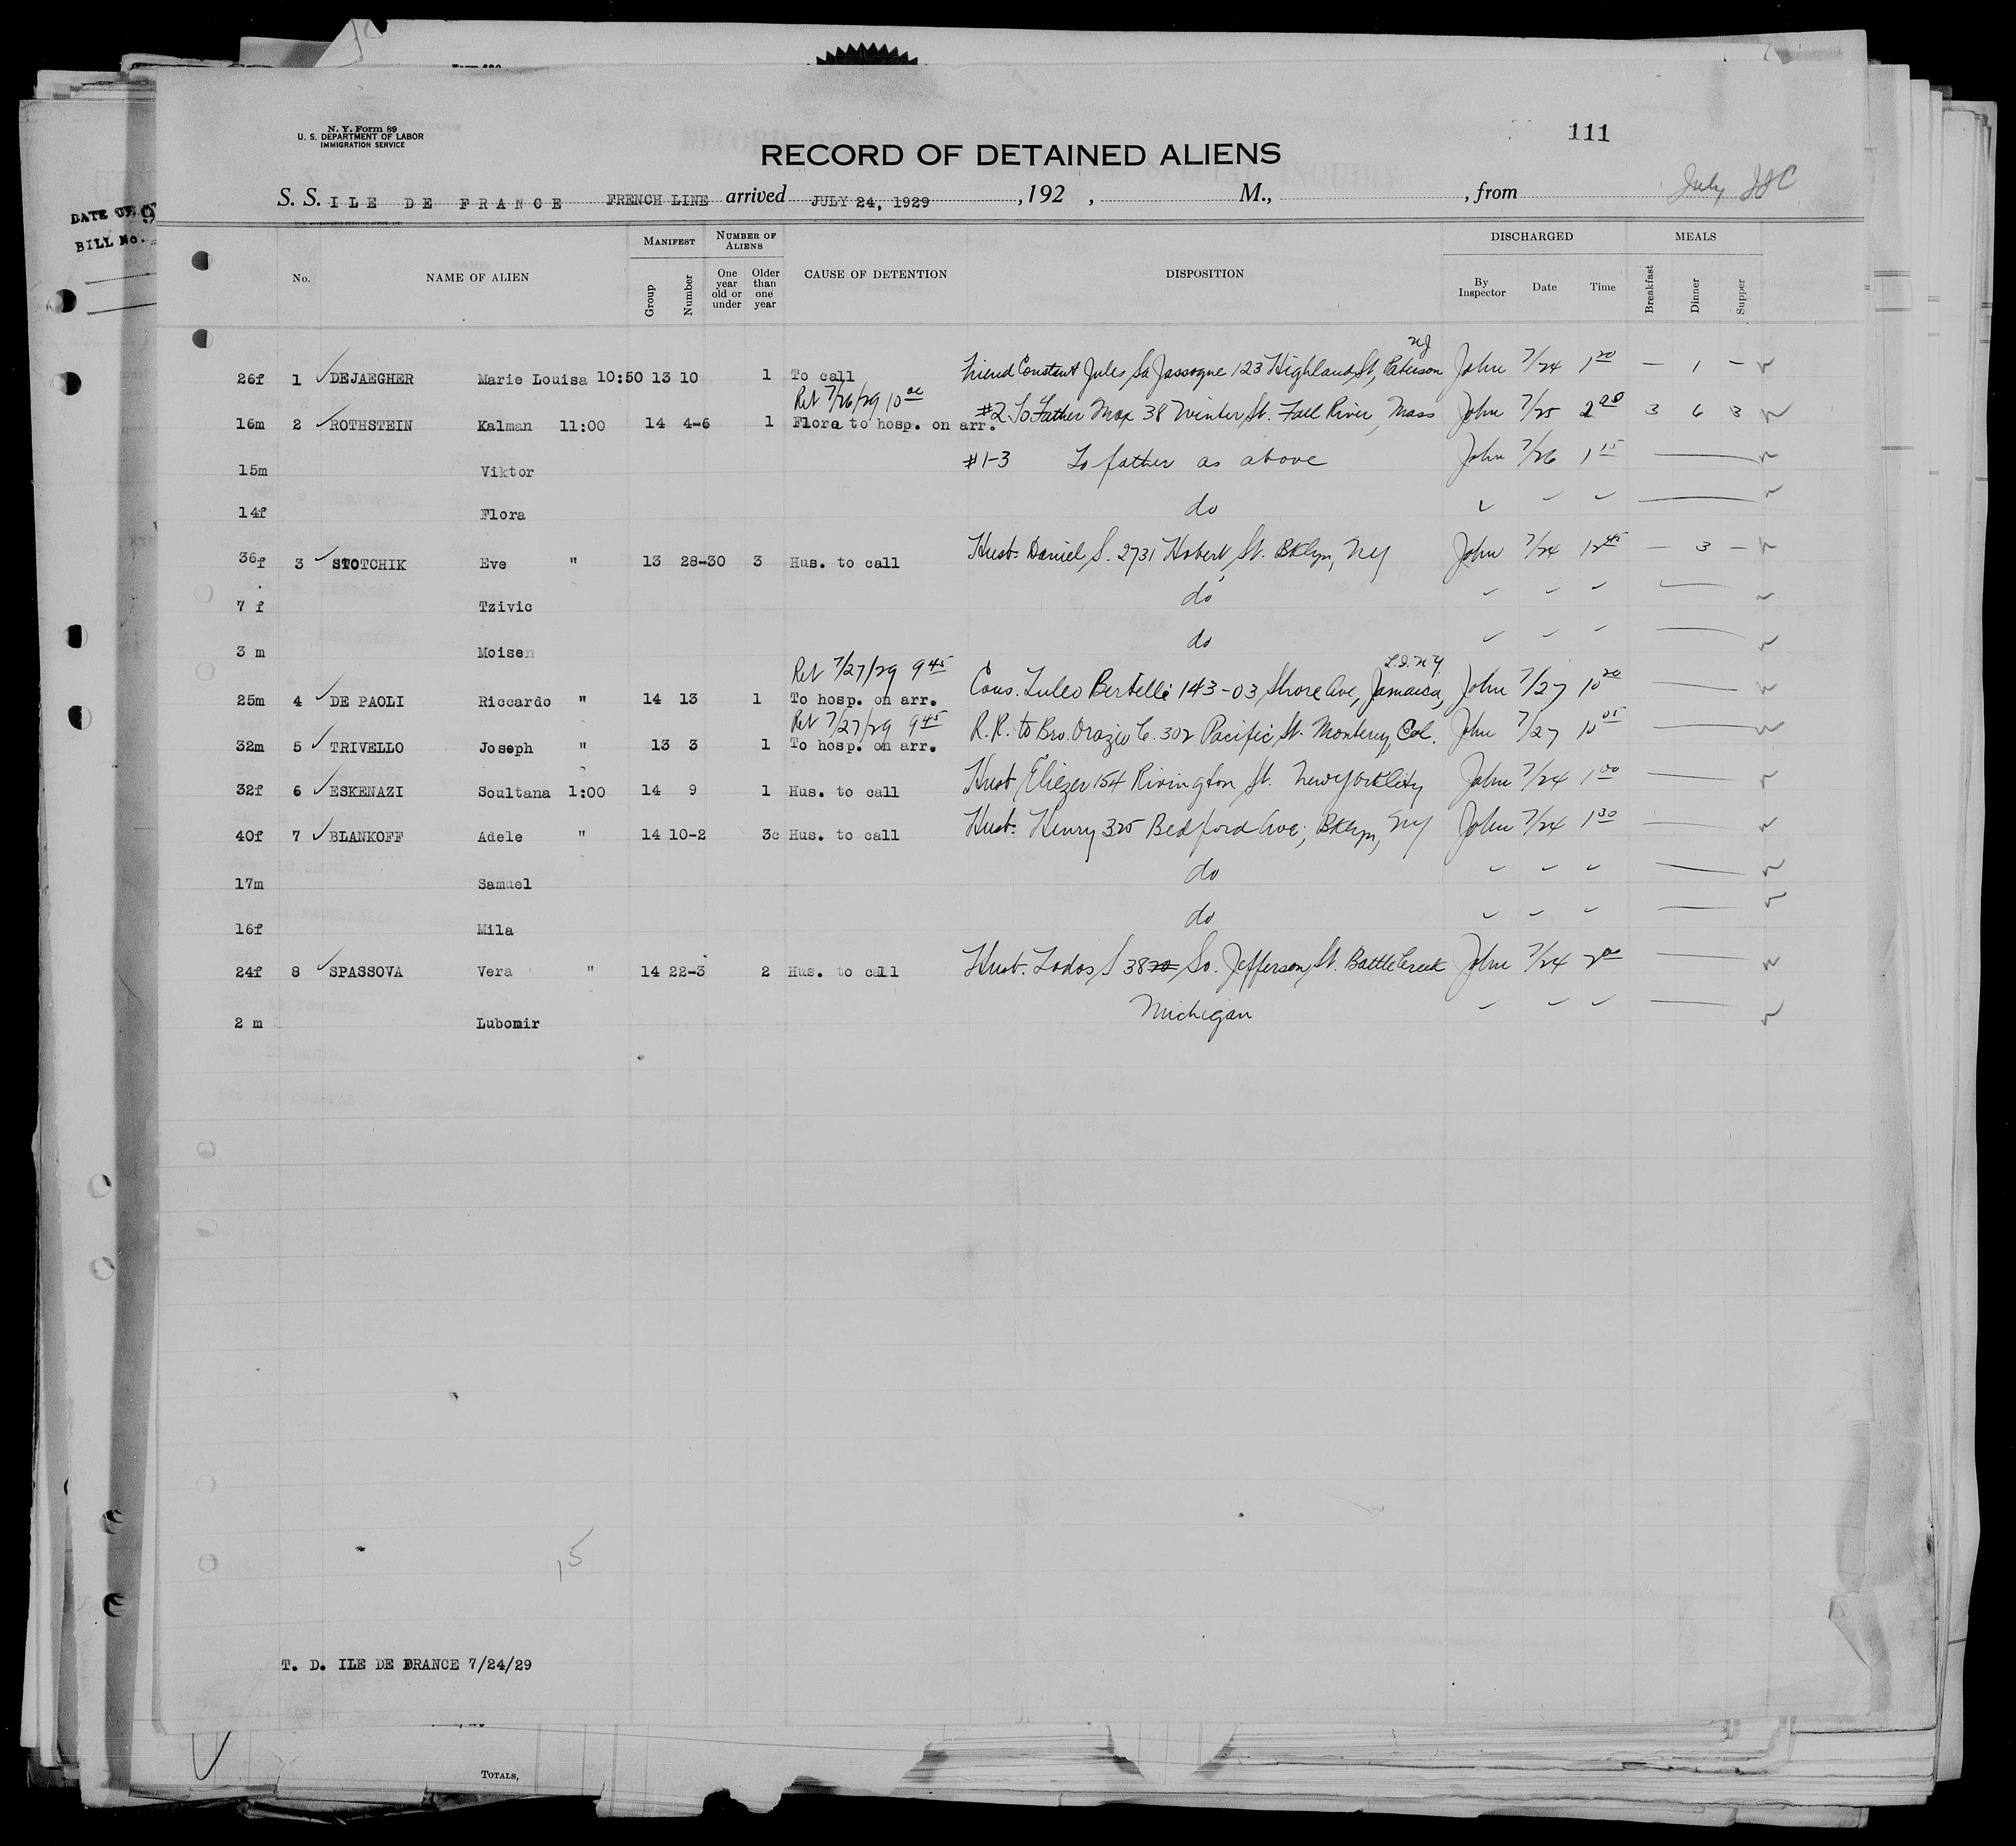 N. Y. Form 89
U. S. DEPARTMENT OF LABOR
IMMIGRATION SERVICE
111
RECORD OF DETAINED ALIENS
S. S. ILE DE FRANCE FRENCH LINE arrived JULY 24, 1929, 192 , M., , from July
DATE OF
BILL No.
MANIFEST NUMBER OF ALIENS DISCHARGED MEALS
No. NAME OF ALIEN Group Number One year old or under Older than one year CAUSE OF DETENTION DISPOSITION By Inspector Date Time Breakfast Dinner Supper
N.J.
26f 1 ✓ DEJAEGHER Marie Louisa 10:50 13 10 1 To call Friend Constant Jules 123 Highland St, Paterson John 7/24 1 20 — 1 —
Ret 7/26/29 10 00
16m 2 ✓ ROTHSTEIN Kalman 11:00 14 4-6 1 Flora to hosp. on arr. #2 To Father Max 38 Winter St. Fall River, Mass John 7/25 2 20 3 6 3
15m Viktor #1-3 To father as above John 7/26 1 15 —
14f Flora do ✓ ✓ ✓ —
36f 3 ✓ STOTCHIK Eve " 13 28-30 3 Hus. to call Husb. Daniel S. 2731 Hobert St. Bklyn, NY John 7/24 12 45 — 3 —
7 f Tzivic do ✓ ✓ ✓ —
3 m Moisen do ✓ ✓ ✓ —
Ret 7/27/29 9 45 L.I. N.Y.
25m 4 ✓ DE PAOLI Riccardo " 14 13 1 To hosp. on arr. Cous. Tulio Bertelli 143-03 Shore Ave, Jamaica, John 7/27 10 20 —
Ret 7/27/29 9 45
32m 5 ✓ TRIVELLO Joseph " 13 3 1 To hosp. on arr. R.R. to Bro. Orazio C. 302 Pacific St. Monterey, Cal. John 7/27 10 05 —
32f 6 ✓ ESKENAZI Soultana 1:00 14 9 1 Hus. to call Husb Eliezer 154 Rivington St. New York City John 7/24 1 00 —
40f 7 ✓ BLANKOFF Adele " 14 10-2 3c Hus. to call Husb. Henry 325 Bedford Ave, Bklyn, NY John 7/24 1 30 —
17m Samuel do ✓ ✓ ✓ —
16f Mila do ✓ ✓ ✓ —
24f 8 ✓ SPASSOVA Vera " 14 22-3 2 Hus. to call Husb. Todos S 38 So. Jefferson St. Battle Creek John 7/24 2 00 —
2 m Lubomir Michigan ✓ ✓ ✓ —
15
T. D. ILE DE FRANCE 7/24/29
TOTALS,